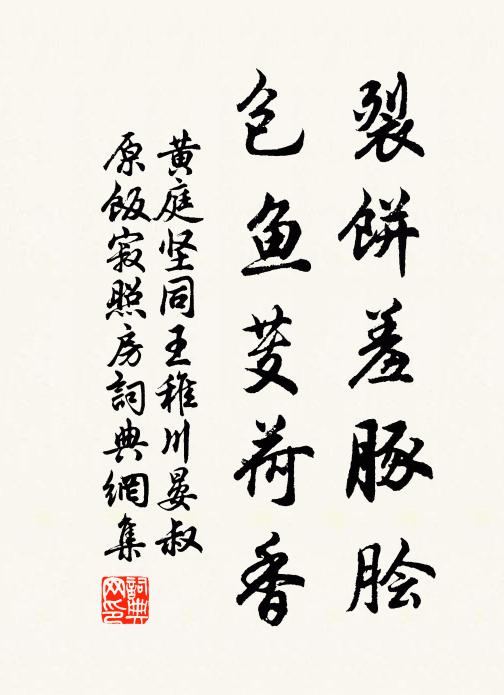 裂餅羞豚脍
包鱼芰荷香
黄庭坚同王稚川晏叔
原飯寂照房詞典網集
詞典
网印